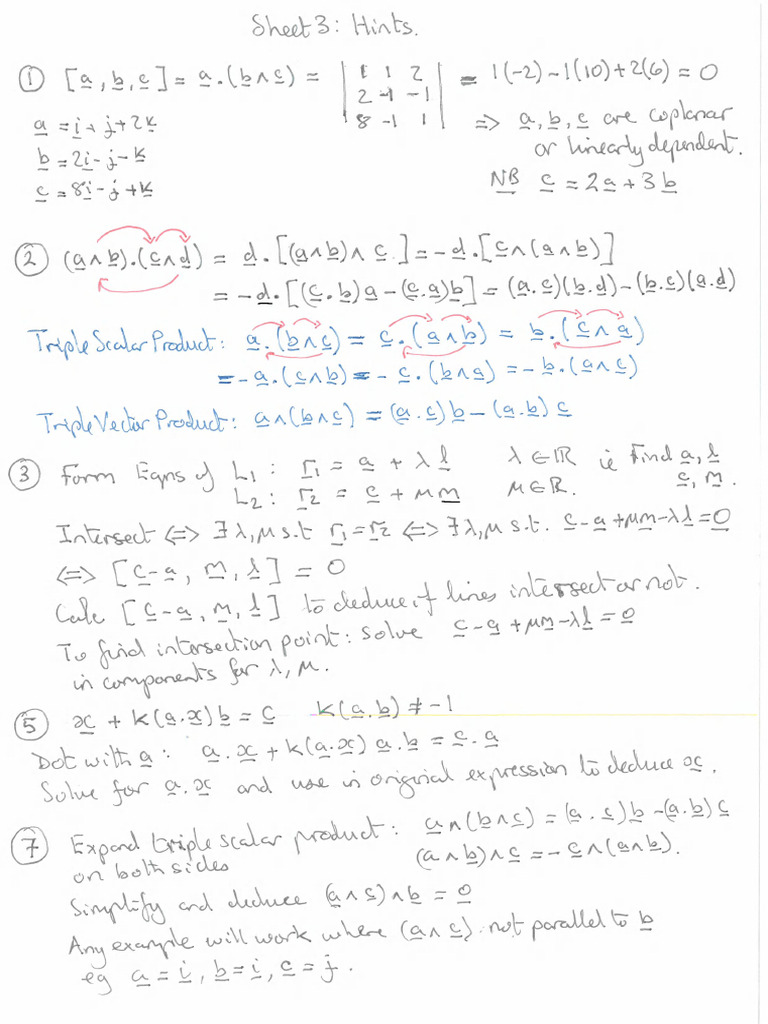 Sheet 3: Hints.
① [a, b, c] = a.(b∧c) = | 1 1 2 | = 1(-2) - 1(10) + 2(6) = 0
2 -1 -1
8 -1 1
a = i + j + 2k
b = 2i - j - k
c = 8i - j + k
⇒ a, b, c are coplanar
or linearly dependent.
NB c = 2a + 3b
② (a∧b).(c∧d) = d.[(a∧b)∧c] = -d.[c∧(a∧b)]
= -d.[(c.b)a - (c.a)b] = (a.c)(b.d) - (b.c)(a.d)
Triple Scalar Product: a.(b∧c) = c.(a∧b) = b.(c∧a)
= -a.(c∧b) = -c.(b∧a) = -b.(a∧c)
Triple Vector Product: a∧(b∧c) = (a.c)b - (a.b)c
③ Form Eqns of L₁: r₁ = a + λl λ∈ℝ ie Find a, l
L₂: r₂ = c + μm μ∈ℝ. c, m.
Intersect ⇔ ∃ λ, μ s.t r₁ = r₂ ⇔ ∃ λ, μ s.t. c - a + μm - λl = 0
⇔ [c - a, m, l] = 0
Calc [c - a, m, l] to deduce if lines intersect or not.
To find intersection point: solve c - a + μm - λl = 0
in components for λ, μ.
⑤ x + k(a.x)b = c k(a.b) ≠ -1
Dot with a: a.x + k(a.x) a.b = c.a
Solve for a.x and use in original expression to deduce x.
⑦ Expand triple scalar product: a∧(b∧c) = (a.c)b - (a.b)c
on both sides (a∧b)∧c = -c∧(a∧b).
Simplify and deduce (a∧c)∧b = 0
Any example will work where (a∧c) not parallel to b
eg a = i, b = i, c = j.